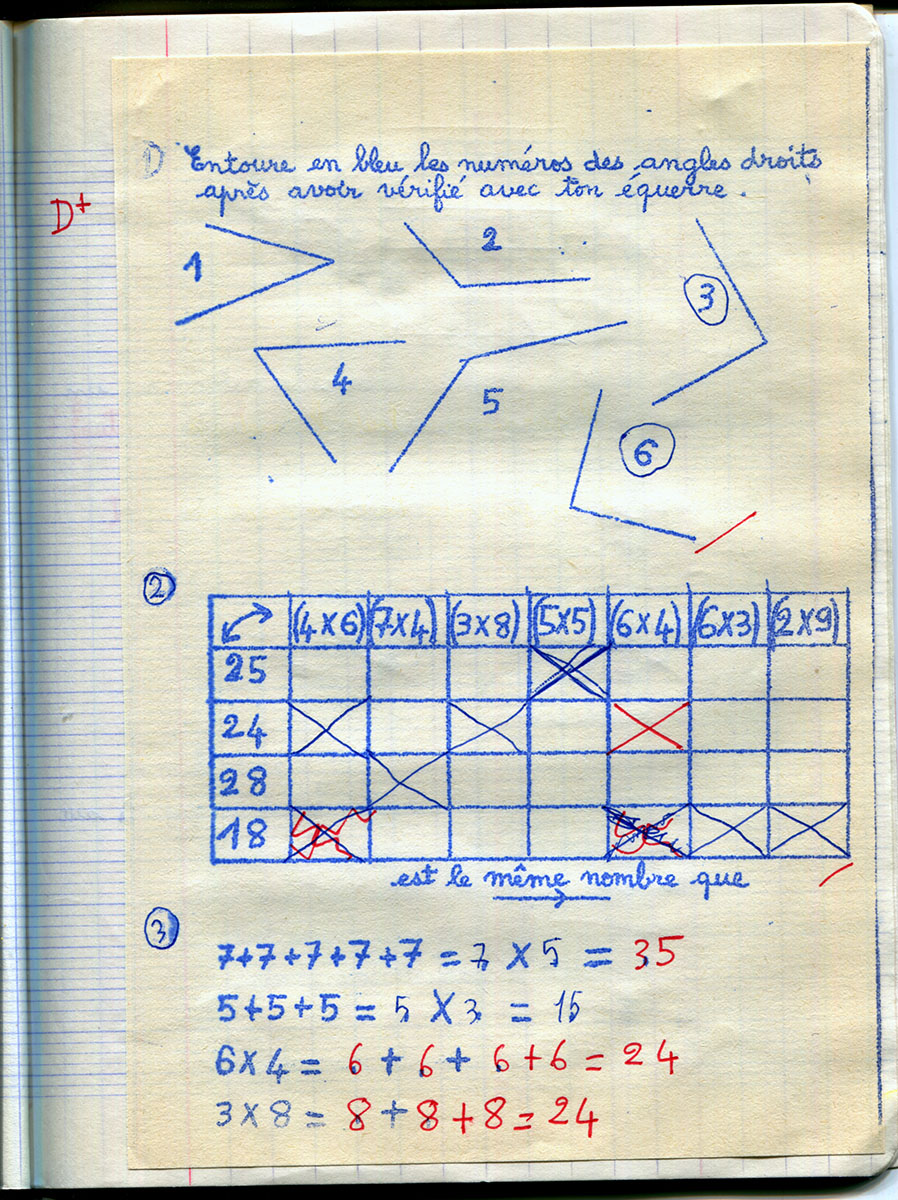 1) Entoure en bleu les numéros des angles droits
après avoir vérifié avec ton équerre.
D+
1
2
3
4
5
6
2
(4×6) (7×4) (3×8) (5×5) (6×4) (6×3) (2×9)
25
24
28
18
est le même nombre que
3
7+7+7+7+7 = 7 × 5 = 35
5+5+5 = 5 × 3 = 15
6×4 = 6 + 6 + 6 + 6 = 24
3×8 = 8 + 8 + 8 = 24